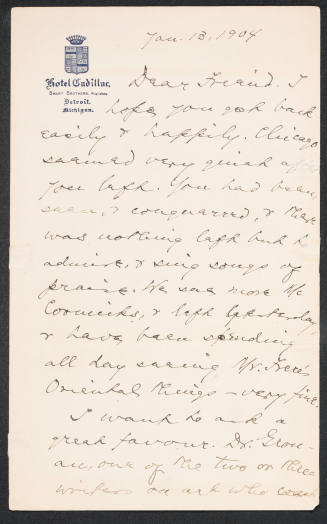 Jan. 13. 1904
Hotel Cadillac,
Detroit,
Michigan.
Dear Friend. I
hope you got back
easily & happily. Chicago
seemed very quiet after
you left. You had been,
seen, & conquered, & there
was nothing left but to
admire, & sing songs of
praise. We saw more Mc
Cormicks, & left yesterday,
& have been spending
all day seeing Mr. Freer's
Oriental things – very fine.
I want to ask a
great favour. Dr. Gron-
au, one of the two or three
writers on art who